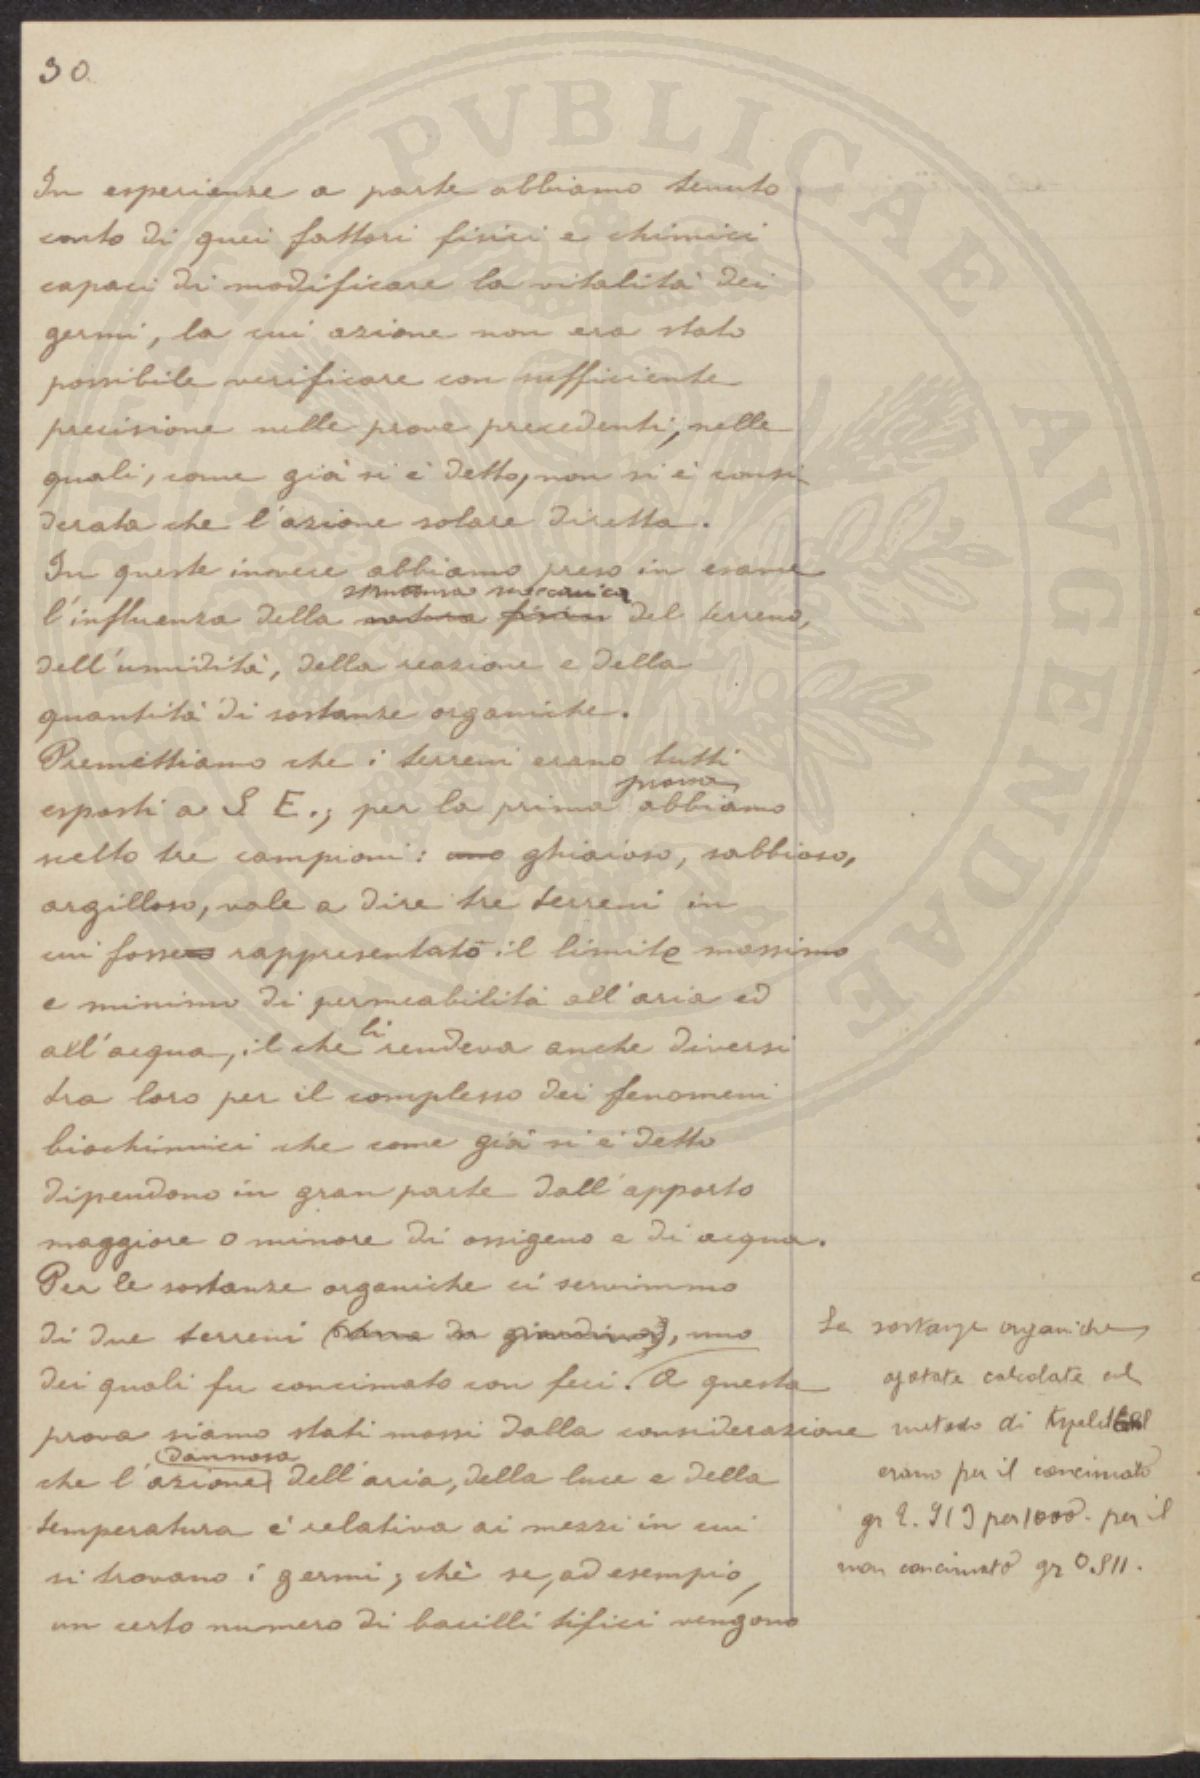 30
In esperienze a parte abbiamo tenuto
conto di quei fattori fisici e chimici
capaci di modificare la vitalità dei
germi, la cui azione non era stato
possibile verificare con sufficiente
precisione nelle prove precedenti, nelle
quali, come già si è detto, non si è consi
derata che l'azione solare diretta.
In queste invece abbiamo preso in esame
struttura meccanica
l'influenza della natura fisica del terreno,
dell'umidità, della reazione e della
quantità di sostanze organiche.
Premettiamo che i terreni erano tutti
prova
esposti a S E.; per la prima abbiamo
scelto tre campioni: uno ghiaioso, sabbioso,
argilloso, vale a dire tre terreni in
cui fosse rappresentato il limite massimo
e minimo di permeabilità all'aria ed
li
all'acqua, il che rendeva anche diversi
tra loro per il complesso dei fenomeni
biochimici che come già si è detto
dipendono in gran parte dall'apporto
maggiore o minore di ossigeno e di acqua.
Per le sostanze organiche ci servimmo
di due terreni (terra da giardino), uno
dei quali fu concimato con feci. A questa
prova siamo stati mossi dalla considerazione
dannosa
che l'azione dell'aria, della luce e della
temperatura è relativa ai mezzi in cui
si trovano i germi; chè se, ad esempio,
un certo numero di bacilli tifici vengono
Le sostanze organiche
azotate calcolate col
metodo di
erano per il concimato
gr 2.913 per 1000. per il
non concimato gr 0.811.
PVBLICAE AVGENDAE